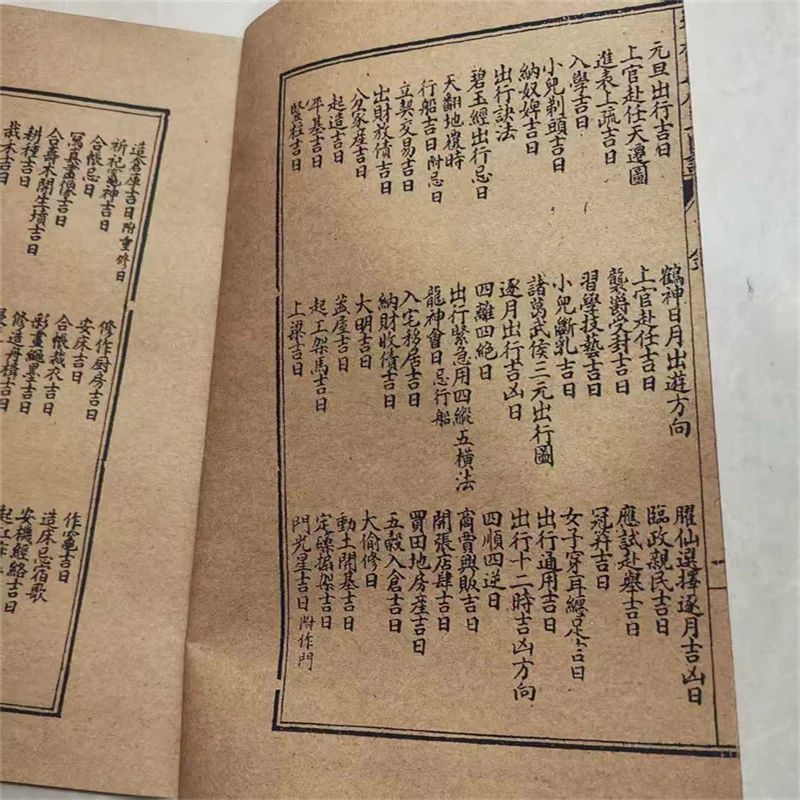 元旦出行吉日
鶴神日月出遊方向
臞仙選擇逐月吉凶日
上官赴任天遷圖
上官赴任吉日
臨政親民吉日
進表上疏吉日
襲爵受封吉日
應試赴舉吉日
入學吉日
習學技藝吉日
冠笄吉日
小兒剃頭吉日
小兒斷乳吉日
女子穿耳纏足吉日
納奴婢吉日
諸葛武侯三元出行圖
出行通用吉日
出行訣法
逐月出行吉凶日
出行十二時吉凶方向
碧玉經出行忌日
四離四絕日
四順四逆日
天翻地覆時
出行緊急用四縱五橫法
商賈興販吉日
行船吉日附忌日
龍神會日忌行船
開張店肆吉日
立契交易吉日
入宅移居吉日
買田地房産吉日
出財放債吉日
納財收債吉日
五穀入倉吉日
分家産吉日
大明吉日
大偷修日
起造吉日
蓋屋吉日
動土開基吉日
平基吉日
起工架馬吉日
定磉搧架吉日
豎柱吉日
上梁吉日
門光星吉日附作門
造倉庫吉日附重修日
修作厨房吉日
作竈吉日
祈祀竈神吉日
安床吉日
造床忌宿歌
合帳忌日
合帳裁衣吉日
安機經絡吉日
寫真畫像吉日
彩畫繩墨吉日
合壽木開生墳吉日
修造再構吉日
耕種吉日
栽木吉日